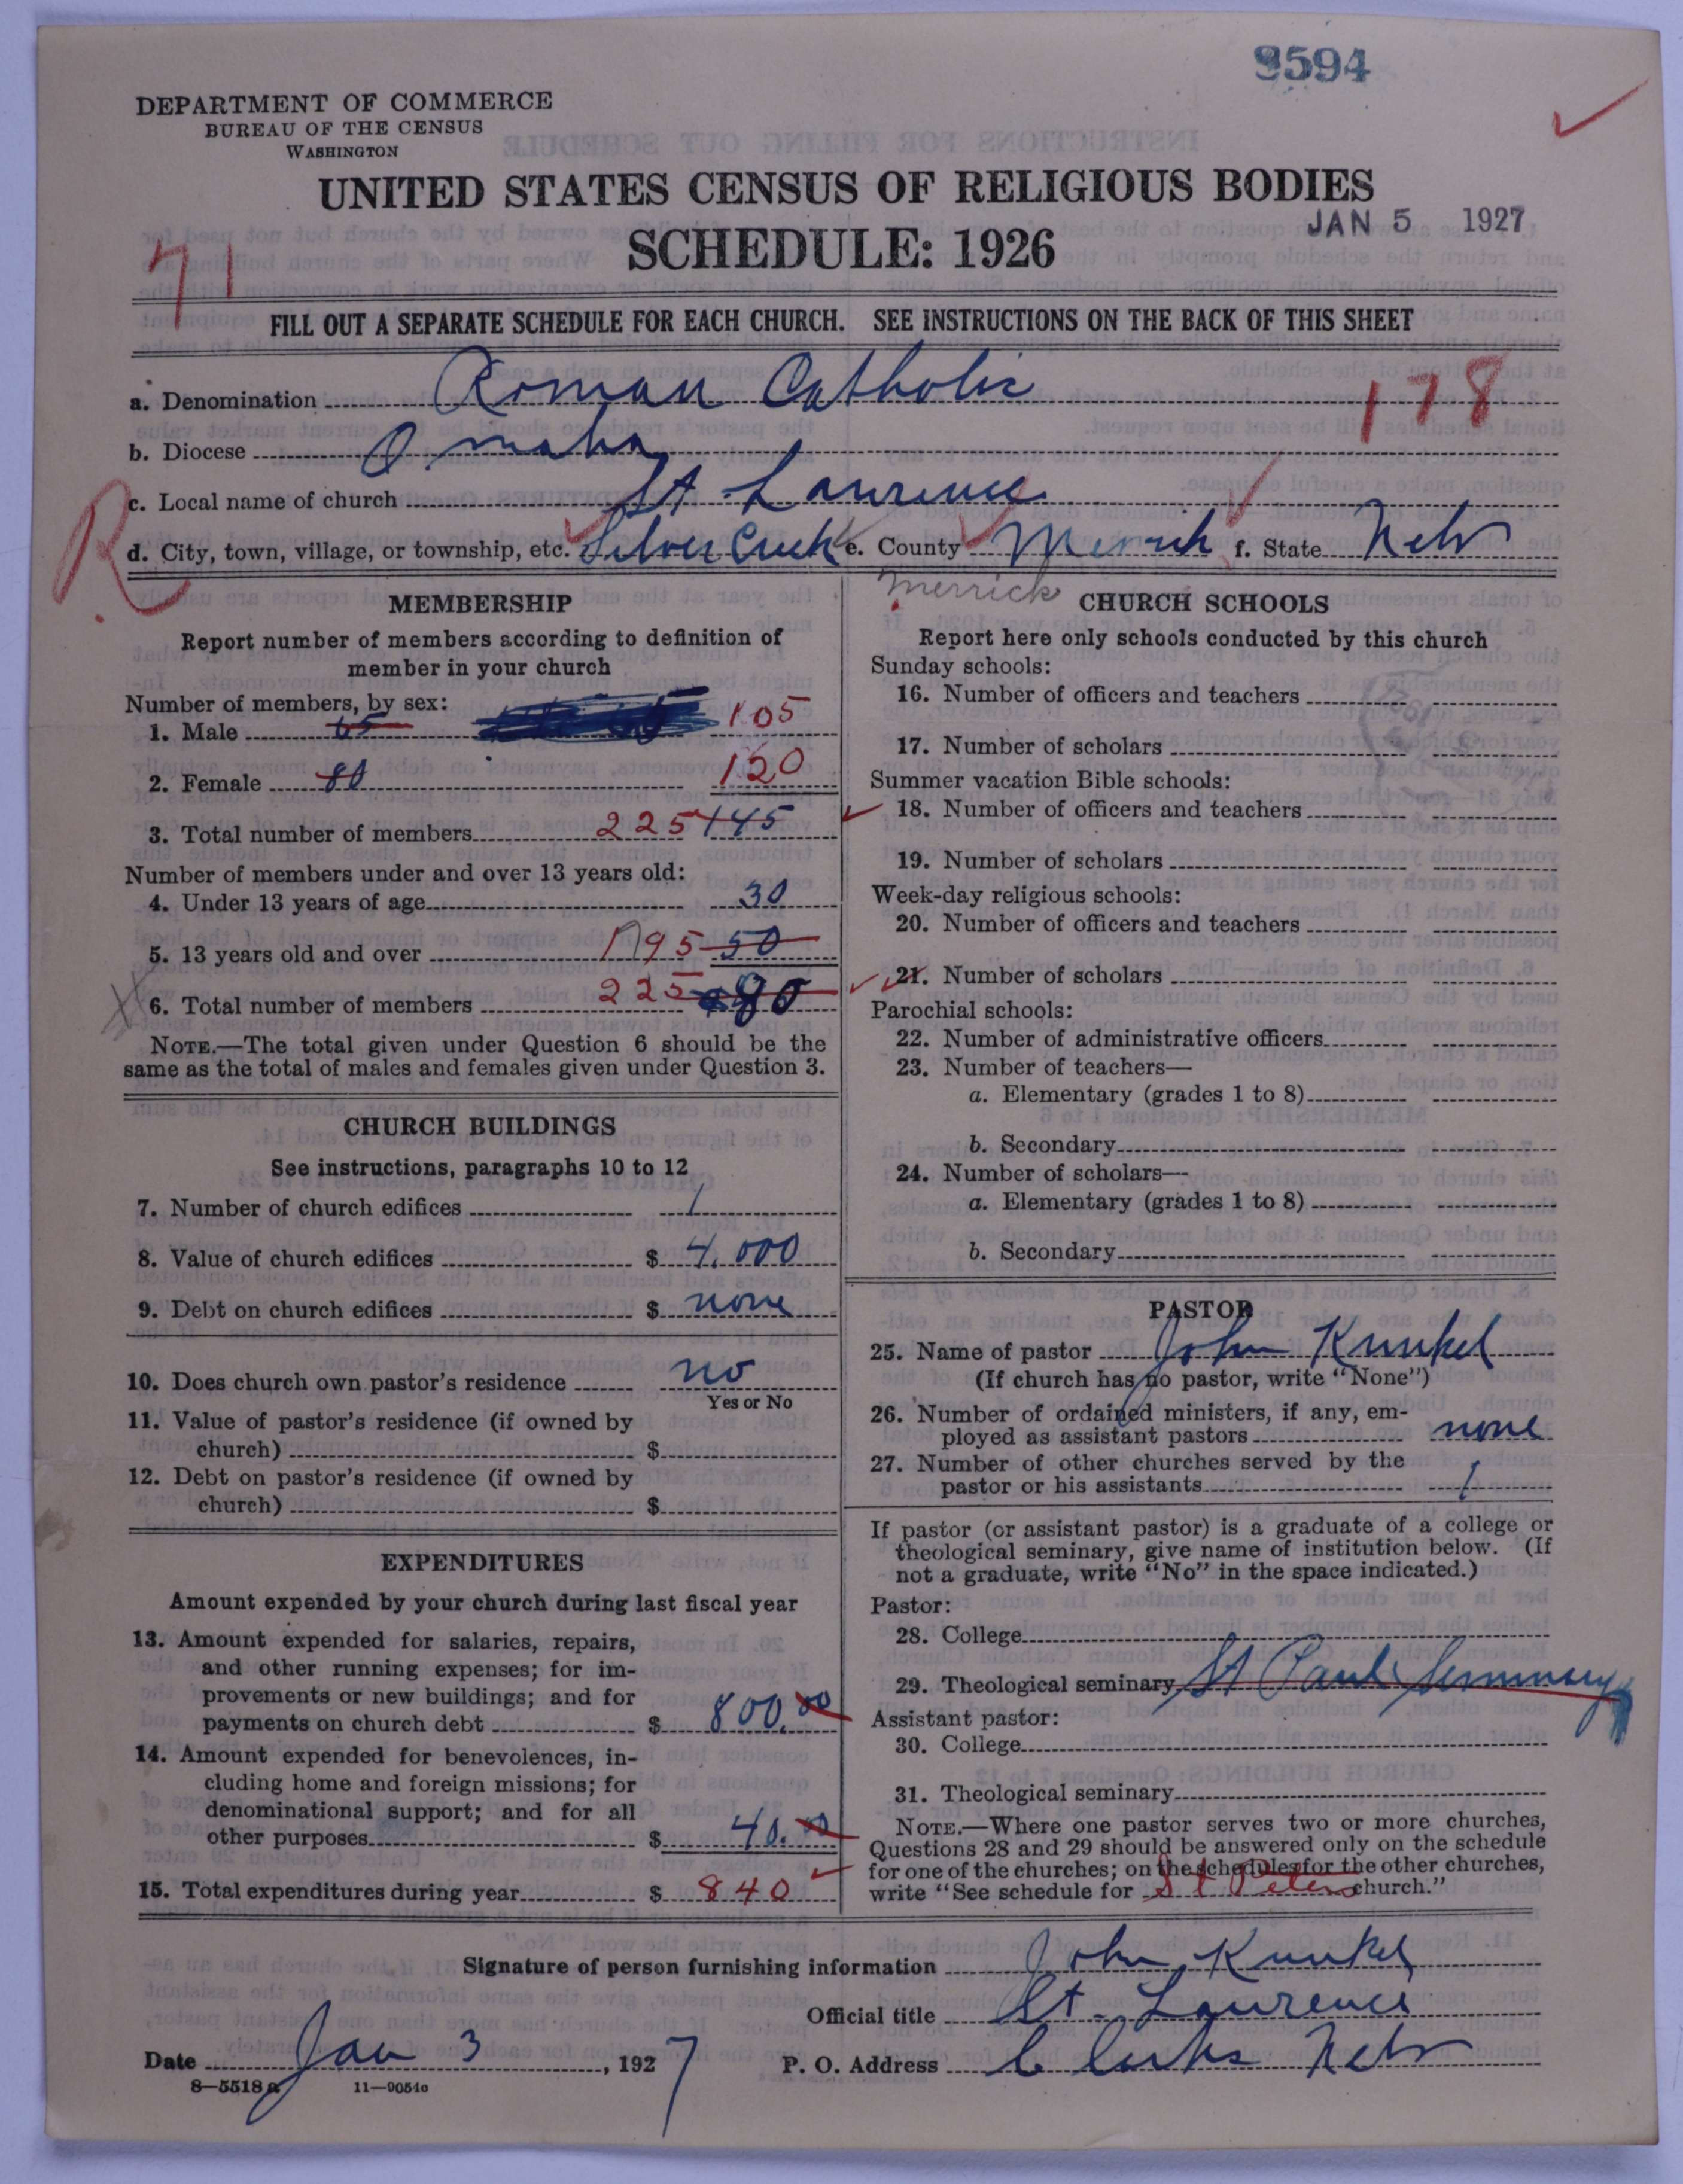 9594
DEPARTMENT OF COMMERCE
BUREAU OF THE CENSUS
WASHINGTON
UNITED STATES CENSUS OF RELIGIOUS BODIES
JAN 5 1927
SCHEDULE: 1926
71
FILL OUT A SEPARATE SCHEDULE FOR EACH CHURCH. SEE INSTRUCTIONS ON THE BACK OF THIS SHEET
a. Denomination Roman Catholic
178
b. Diocese Omaha
c. Local name of church St. Lawrence
R
d. City, town, village, or township, etc. Silver Creek e. County Merrick f. State Nebr
Merrick
MEMBERSHIP
Report number of members according to definition of
member in your church
Number of members, by sex:
1. Male 65 105
2. Female 80 120
3. Total number of members 225 145
Number of members under and over 13 years old:
4. Under 13 years of age 30
5. 13 years old and over 195 50
6. Total number of members 225 80
NOTE.—The total given under Question 6 should be the
same as the total of males and females given under Question 3.
CHURCH BUILDINGS
See instructions, paragraphs 10 to 12
7. Number of church edifices 1
8. Value of church edifices $ 4,000
9. Debt on church edifices $ none
10. Does church own pastor's residence no
Yes or No
11. Value of pastor's residence (if owned by
church) $
12. Debt on pastor's residence (if owned by
church) $
EXPENDITURES
Amount expended by your church during last fiscal year
13. Amount expended for salaries, repairs,
and other running expenses; for im-
provements or new buildings; and for
payments on church debt $ 800.00
14. Amount expended for benevolences, in-
cluding home and foreign missions; for
denominational support; and for all
other purposes $ 40.00
15. Total expenditures during year $ 840
CHURCH SCHOOLS
Report here only schools conducted by this church
Sunday schools:
16. Number of officers and teachers
17. Number of scholars
Summer vacation Bible schools:
18. Number of officers and teachers
19. Number of scholars
Week-day religious schools:
20. Number of officers and teachers
21. Number of scholars
Parochial schools:
22. Number of administrative officers
23. Number of teachers—
a. Elementary (grades 1 to 8)
b. Secondary
24. Number of scholars—
a. Elementary (grades 1 to 8)
b. Secondary
PASTOR
25. Name of pastor John Kunkel
(If church has no pastor, write "None")
26. Number of ordained ministers, if any, em-
ployed as assistant pastors none
27. Number of other churches served by the
pastor or his assistants 1
If pastor (or assistant pastor) is a graduate of a college or
theological seminary, give name of institution below. (If
not a graduate, write "No" in the space indicated.)
Pastor:
28. College
29. Theological seminary St Pauls Seminary
Assistant pastor:
30. College
31. Theological seminary
NOTE.—Where one pastor serves two or more churches,
Questions 28 and 29 should be answered only on the schedule
for one of the churches; on the schedules for the other churches,
write "See schedule for St Peters church."
Signature of person furnishing information John Kunkel
Official title St. Lawrence
Date Jan 3, 1927 P. O. Address Clarks Nebr
8—5518a 11—9051c